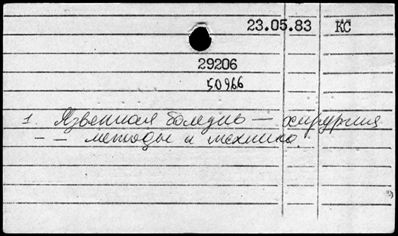 23.05.83 КС
29206
50966
1. Язвенная болезнь — хирургия
— — методы и техника.